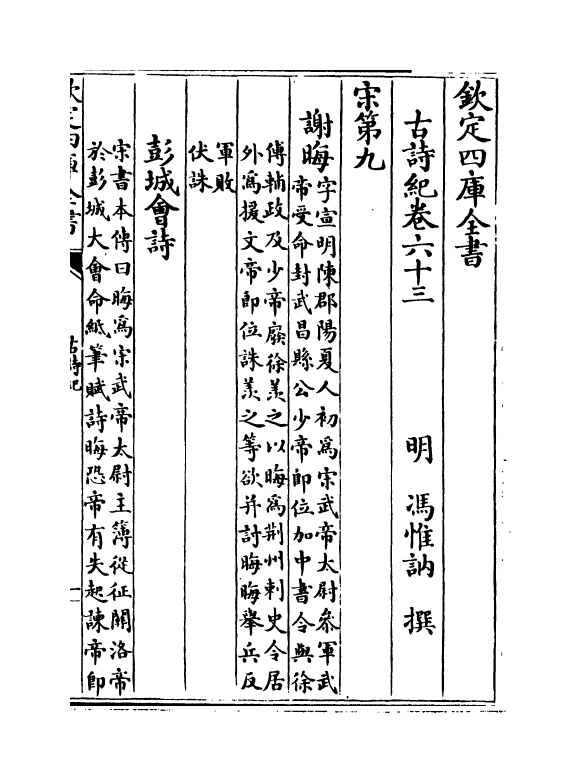 欽定四庫全書
古詩紀卷六十三
明 馮惟訥 撰
宋第九
謝晦字宣明陳郡陽夏人初為宋武帝太尉參軍武
帝受命封武昌縣公少帝即位加中書令與徐
傅輔政及少帝廢徐羨之以晦為荆州刺史令居
外為援文帝即位誅羨之等欲并討晦晦舉兵反
軍敗
伏誅
彭城會詩
宋書本傳曰晦為宋武帝太尉主簿從征關洛帝
於彭城大會命紙筆賦詩晦恐帝有失起諫帝即
欽定四庫全書
古詩紀
一